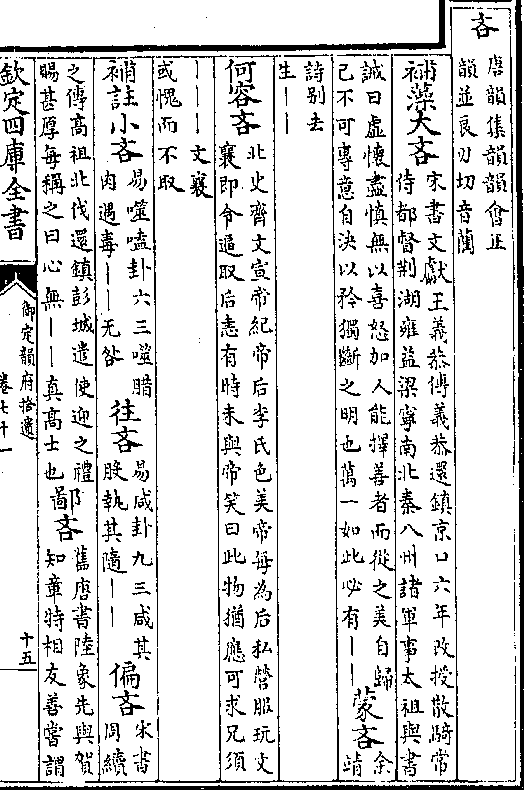 吝
唐韻集韻韻會正
韻並良刃切音藺
補藻大吝
宋書文獻王義恭傳義恭還鎮京口六年改授散騎常
侍都督荆湖雍益梁寧南北秦八州諸軍事太祖與書
誡曰虛懷盡慎無以喜怒加人能擇善者而從之美自歸
己不可專意自決以矜獨斷之明也萬一如此必有——
蒙吝
余
靖
詩别去
生——
何容吝
北史齊文宣帝紀帝后李氏色美帝每為后私營服玩文
襄即令逼取后恚有時未與帝笑曰此物猶應可求兄須
———文襄
或愧而不取
補註小吝
易噬嗑卦六三噬腊
肉遇毒——无咎
往吝
易咸卦九三咸其
股執其隨——
偏吝
宋書
周續
之傳高祖北伐還鎮彭城遣使迎之禮
賜甚厚每稱之曰心無——真高士也
鄙吝
舊唐書陸象先與賀
知章特相友善嘗謂
欽定四庫全書
御定韻府拾遺
卷七十一
十五